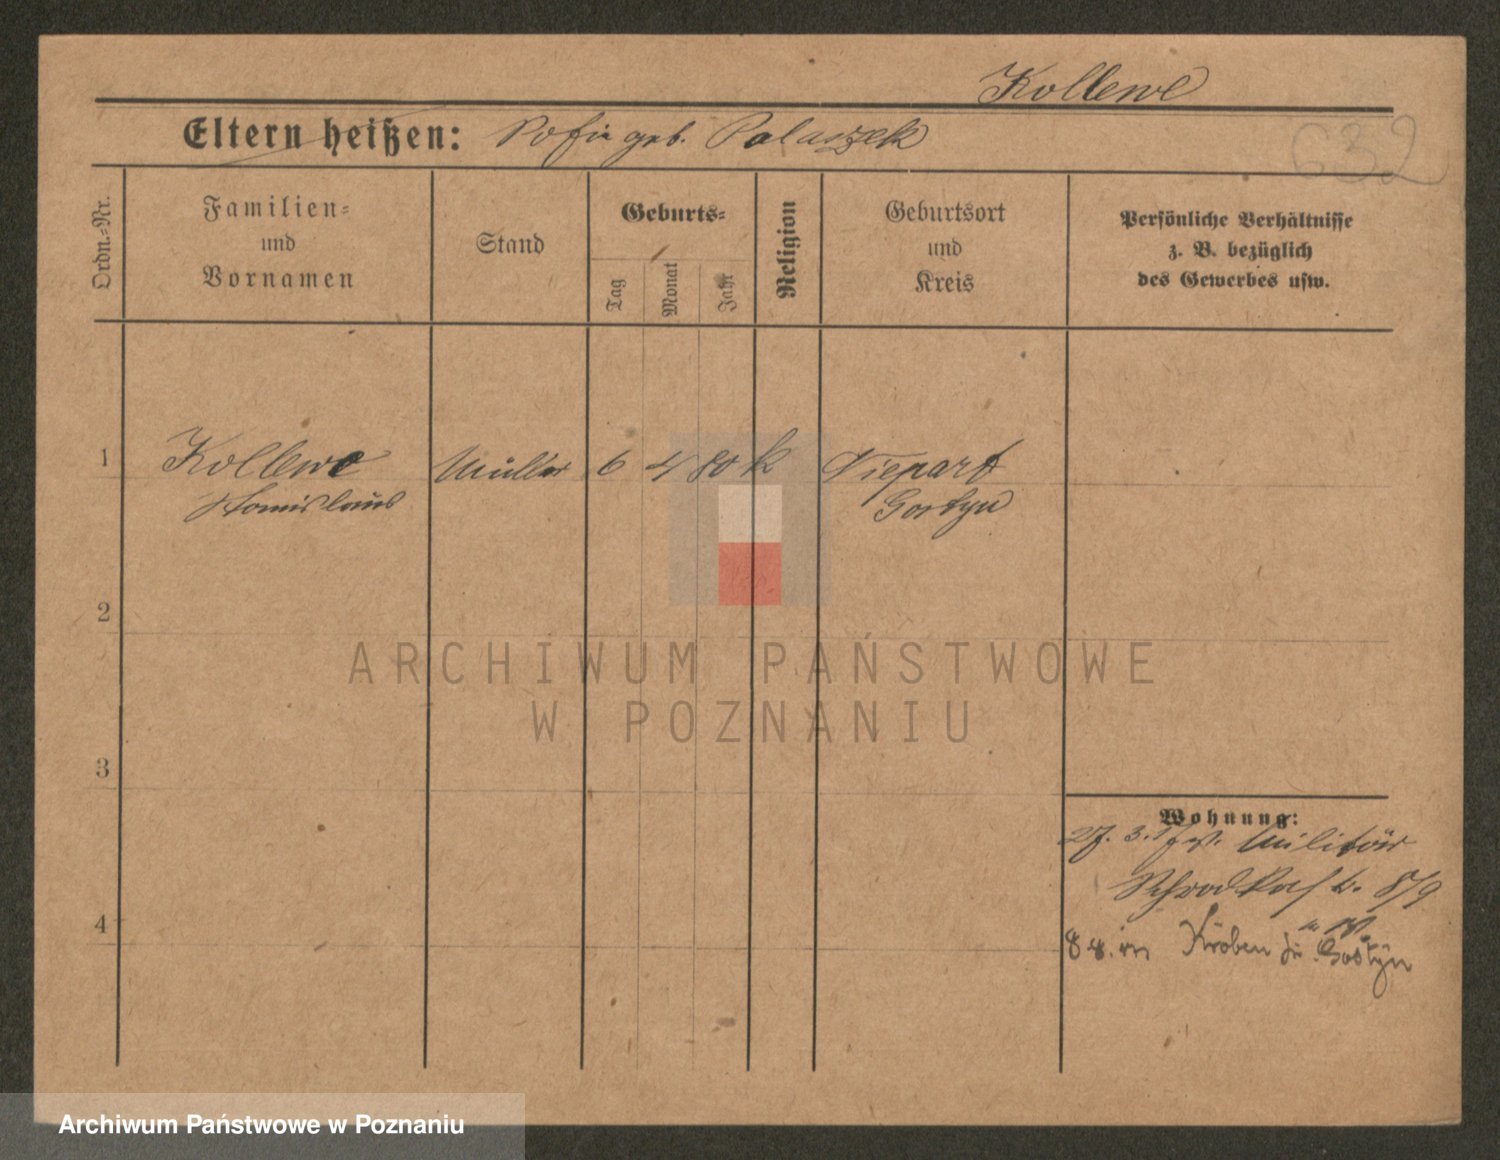 Kollewe
Eltern heißen: Sofie geb. Palaszek
632
Ordn.-Nr.
Familien-
und
Vornamen
Stand
Geburts-
Tag
Monat
Jahr
Religion
Geburtsort
und
Kreis
Persönliche Verhältnisse
z. B. bezüglich
des Gewerbes usw.
1 Kollewe Müller 6 4 80 k Niepart
Stanislaus Gostyn
2
ARCHIWUM PAŃSTWOWE
W POZNANIU
3
Wohnung:
27. 3. Militär
8/9
4
Kröben Gostyn
Archiwum Państwowe w Poznaniu